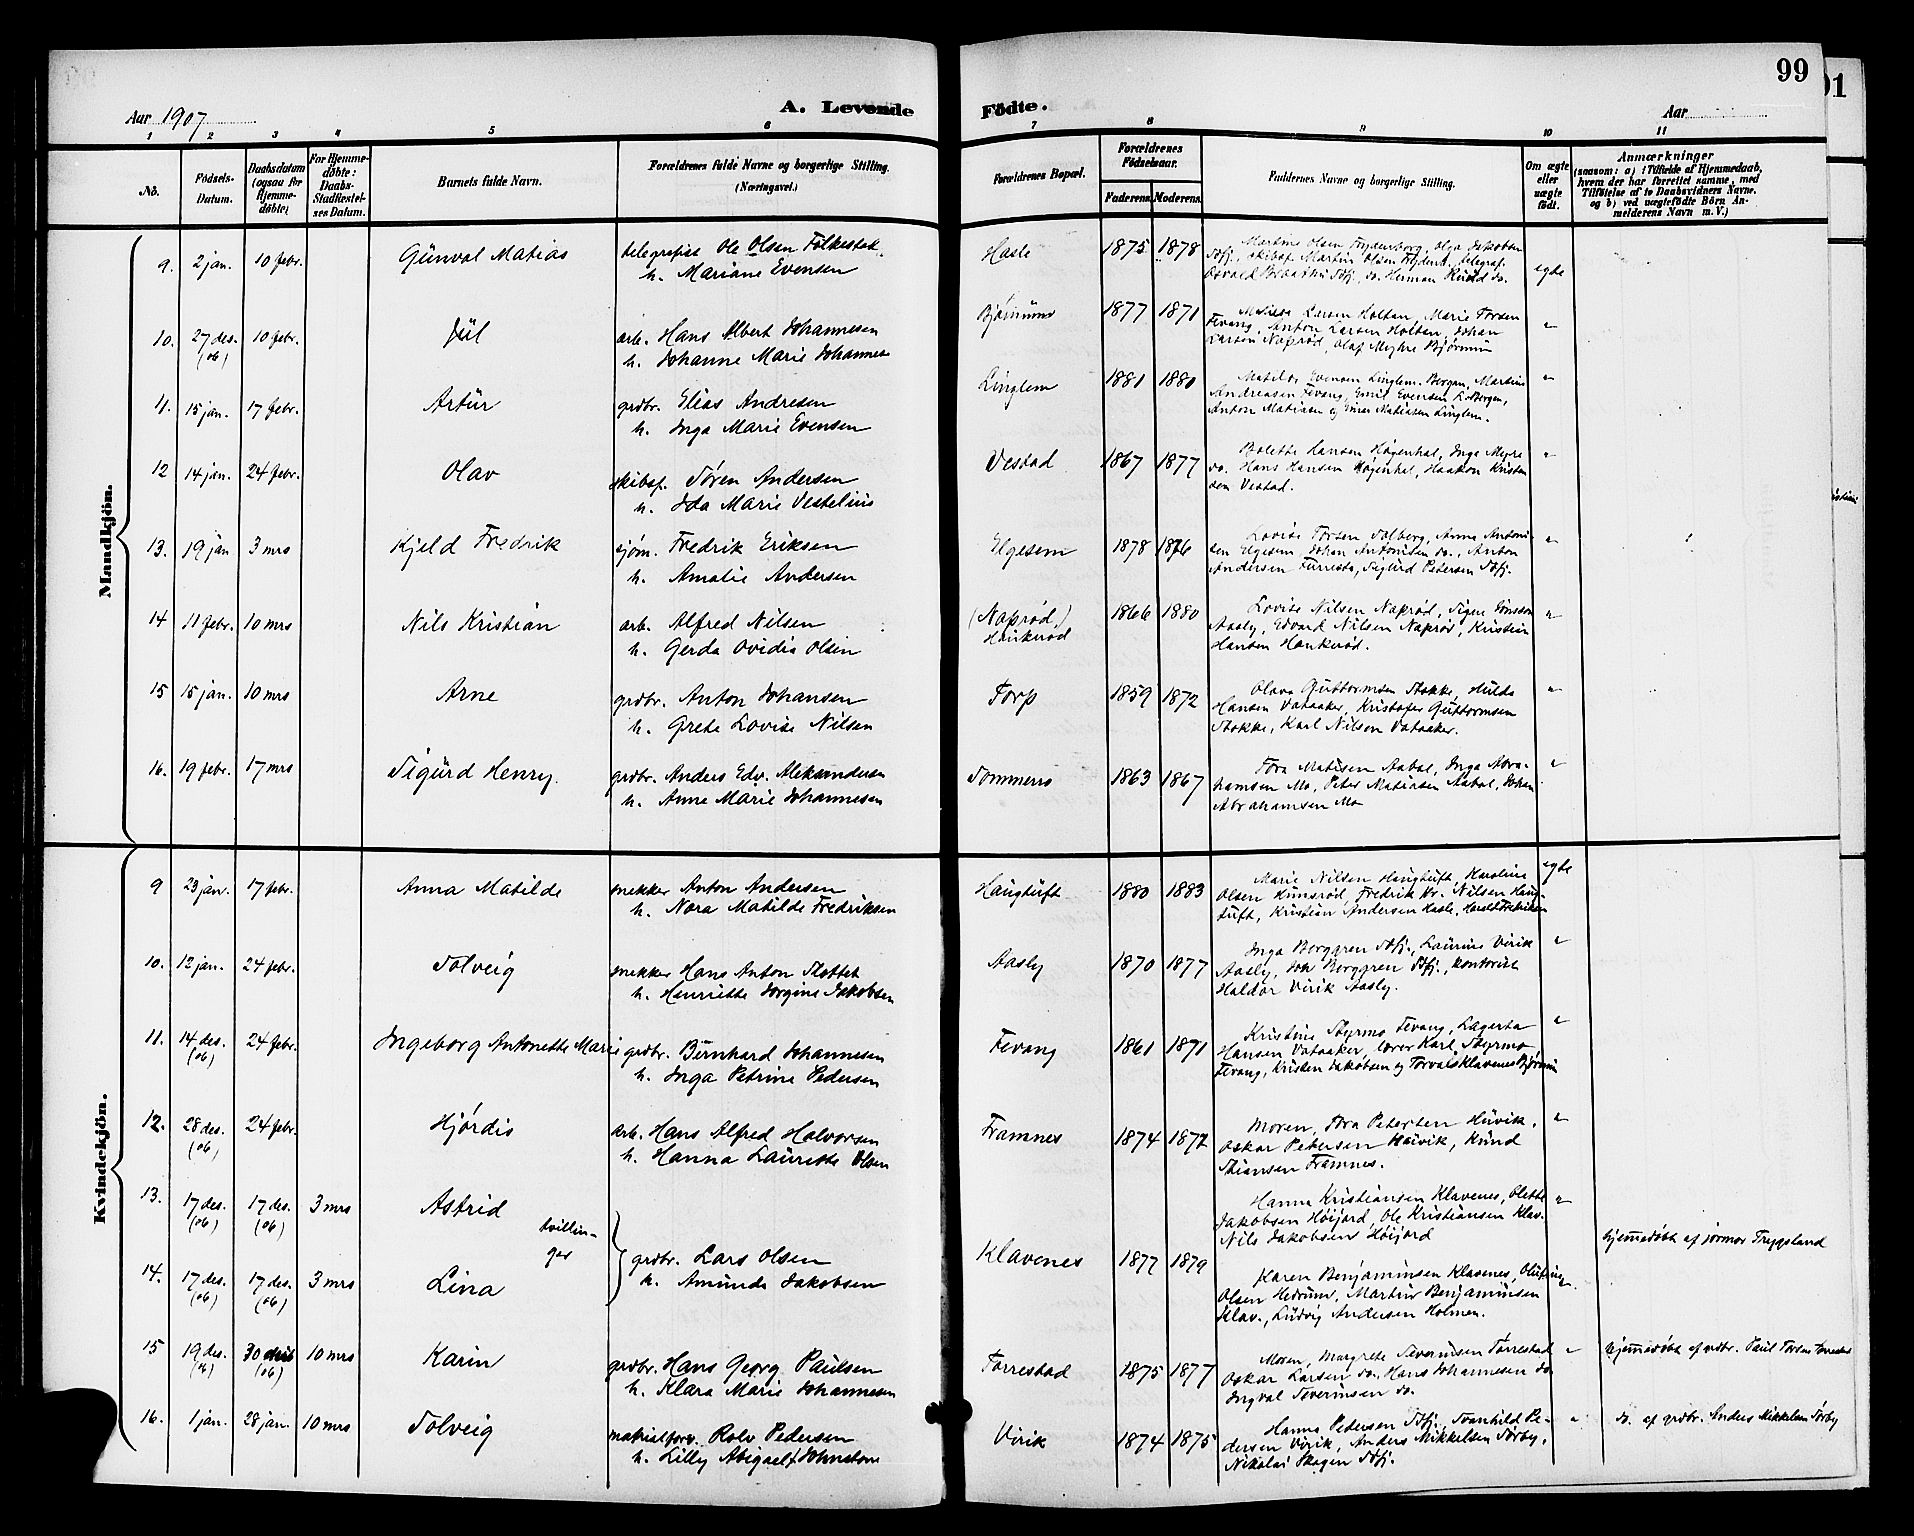 99
91
Aar 1907
A. Levende
Födte.
Aar
1 2 3 4 5 6 7 8 9 10 11
No.
Födsels-
Datum.
Daabsdatum
(ogsaa for
Hjemme-
döbte)
For Hjemme-
döbte:
Daabs-
Stadfæstel-
ses Datum.
Barnets fulde Navn.
Forældrenes fulde Navne og borgerlige Stilling.
(Næringsvei.)
Forældrenes Bopæl.
Forældrenes
Födselsaar.
Faderens. Moderens.
Faddernes Navne og borgerlige Stilling.
Om ægte
eller
uægte
födt.
Anmærkninger
(saasom: a) i Tilfælde af Hjemmedaab,
hvem der har forrettet samme, med
Tilföielse af to Daabsvidners Navne,
og b) ved uægtefödte Börn An-
melderens Navn m. V.)
Mandkjön.
9. 2 jan. 10 febr. Gunval Matias
telegrafist Ole Olsen Folkestak
h. Mariane Evensen
Hasle 1875 1878
Martine Olsen Frydenborg, Olga Jakobsen
Sbfj., skibsf. Martin Olsen Frydenb., telegraf.
Osvald Sbfj., do. Herman Ruud do.
egte
10. 27 des. (06) 10 febr. Jül
arb. Hans Albert Johannesen
h. Johanne Marie Johannese
Bjørnum 1877 1871
Larsen Holtan, Marie Torsen
Fevang, Anton Larsen Holtan, Johan
Larsen Naprød, Olaf Myhre Bjørnum
"
11. 15 jan. 17 febr. Artür
grdbr. Elias Andresen
h. Inga Marie Evensen
Linglem 1881 1880
Matilde Evensen Linglem-Bergan, Martine
Andreasen Fevang, Emil Evensen L.-Bergan,
Anton Matiasen og Einar Matiasen Linglem.
"
12 14 jan. 24 febr. Olav
skibsf. Søren Andersen
h. Ida Marie Vestelius
Vestad 1867 1877
Bolette Hansen Høgenhal, Inga Myre
do. Hans Hansen Høgenhal, Haakon Kristen
sen Vestad.
"
13. 19 jan 3 mrs Kjeld Fredrik
sjøm. Fredrik Eriksen
h. Amalie Andersen
Elgesem 1878 1876
Lovise Torsen Solberg, Anna Antoni
sen Elgesem, Johan Antonisen do., Anton
Andersen Furrestø, Sigurd Petersen Sbfj.
"
14 11 febr. 10 mrs Nils Kristian
arb. Alfred Nilsen
h. Gerda Ovidia Olsen
(Naprød,)
Haukerød 1866 1880
Lovise Nilsen Naprød, Signe Jonsson
Aasly, Edvard Nilsen Naprød, Kristian
Hansen Haukerød.
"
15 15 jan. 10 mrs Arne
grdbr. Anton Johansen
h. Grete Lovise Nilsen
Torp 1859 1872
Olava Guttormsen Stokke, Hulda
Hansen Vataaker, Kristofer Guttormsen
Stokke, Karl Nilsen Vataaker.
"
16. 19 febr. 17 mrs Sigurd Henry.
grdbr. Anders Edv. Aleksandersen
h. Anne Marie Johannesen
Sommerrs 1863 1867
Tora Matisen Aabol, Inga Abra-
hamsen Mo, Peter Matiasen Aabol, Johan
Abrahamsen Mo
"
Kvindekjön.
9 23 jan. 17 febr. Anna Matilde
snekker Anton Andersen
h. Nora Matilde Fredriksen
Haugtuft 1880 1883
Marie Nilsen Haugtuft, Karoline
Olsen Hunsrød, Fredrik Kr. Nilsen Haug-
tuft, Kristian Andersen Hasle, Harald Fredriksen
egte
10. 12 jan. 24 febr. Solveig
snekker Hans Anton Slottet
h. Henriette Jorgine Jakobsen
Aasly 1870 1877
Inga Berggren Sbfj., Laurine Virik
Aasly, Joh Berggren Sbfj., kontorist
Haldor Virik Aasly.
"
11. 14 des. (06) 24 febr. Ingeborg Antonette Marie
grdbr. Bernhard Johannesen
h. Inga Petrine Pedersen
Fevang 1861 1871
Kristine Styrmo Fevang, Lagerta
Hansen Vataaker, lærer Karl Styrmo
Fevang, Kristen Jakobsen og Torvald Klavenes Bjørnum
"
12. 28 des. (06) 24 febr. Hjørdis
arb. Hans Alfred Halvorsen
h. Hanna Laurette Olsen
Framnes 1874 1872
Moren, Tora Petersen Huvik,
Oskar Petersen Huvik, Knud
Stiansen Framnes.
"
13. 17 des. (06) 17 des. (06) 3 mrs Astrid
tvillin-
ger
Hanna Kristiansen Klavenes, Olette
Jakobsen Høijord, Ole Kristiansen Klav.
Nils Jakobsen Høijord
"
grdbr. Lars Olsen
h. Amunda Jakobsen
Klavenes 1877 1879
hjemmedøbt af jormor Tryggsland
14. 17 des. (06) 17 des. (06) 3 mrs Lina
Karen Benjaminsen Klavenes, Olufine
Olsen Hedrum, Martin Benjaminsen
Klav., Ludvig Andersen Holmen.
"
15 19 des. (06) 30 des (06) 10 mrs Karin
grdbr. Hans Georg Paulsen
h. Klara Marie Johannesen
Torrestad 1875 1877
Moren, Margrete Severinsen Tørrestad
Oskar Larsen do. Hans Johannesen do.
Ingval Severinsen do.
"
hjemmedøbt af grdbr. Paul Torsen Torrestad
16. 1 jan. 28 jan. 10 mrs Solveig
matrialforv. Rolv Pedersen
h. Lilly Abigael Johnstone
Virik 1874 1875
Hanna Pedersen Sbfj., Svanhild Pe-
dersen Virik, Anders Mikkelsen Sørby,
Nikolai Skagen Sbfj.
"
do. af grdbr. Anders Mikkelsen Sørby